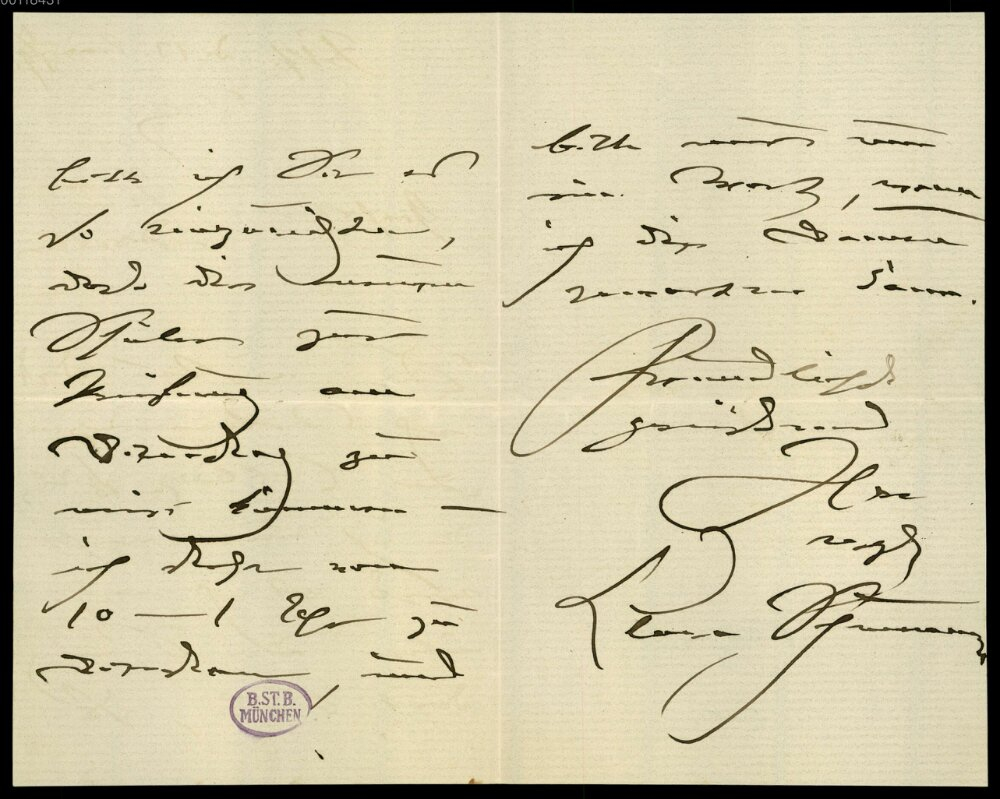 bitte ich Sie es
so einzurichten,
daß die neuen
Schüler zur
Prüfung am
Dienstag zu
mir kommen —
ich stehe von
10 — 1 Uhr zu
Diensten, und
B.ST.B.
MÜNCHEN
bitte nur um
ein Wort, wann
ich die Damen
erwarten kann.
Freundlichst
grüßend
Ihre
ergb
Clara Schumann